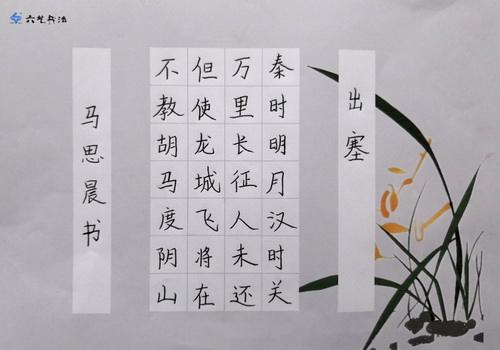 六艺书法
出塞
秦时明月汉时关
万里长征人未还
但使龙城飞将在
不教胡马度阴山
马思晨书